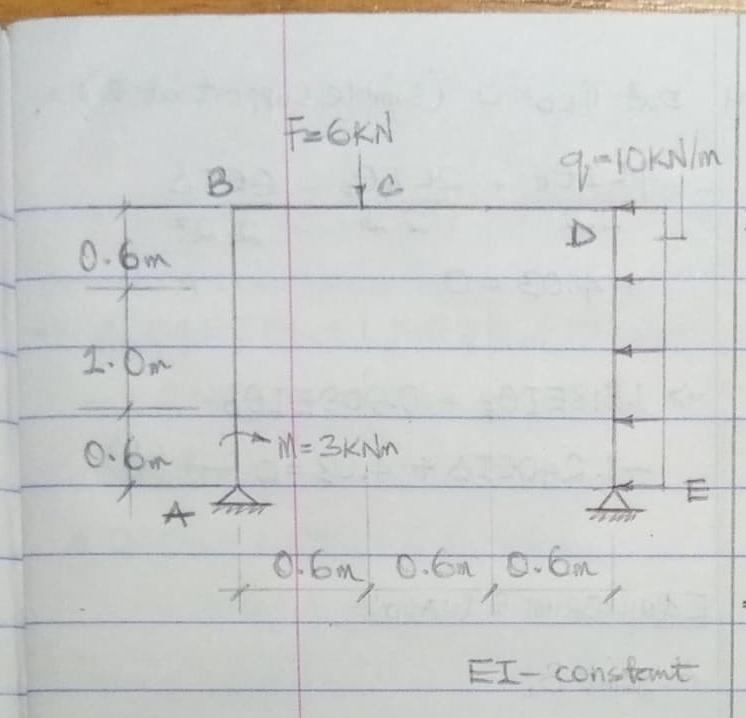 F=6KN
q=10KN/m
B
C
D
0.6m
1.0m
M=3KNm
0.6m
A
E
0.6m 0.6m 0.6m
EI- constant